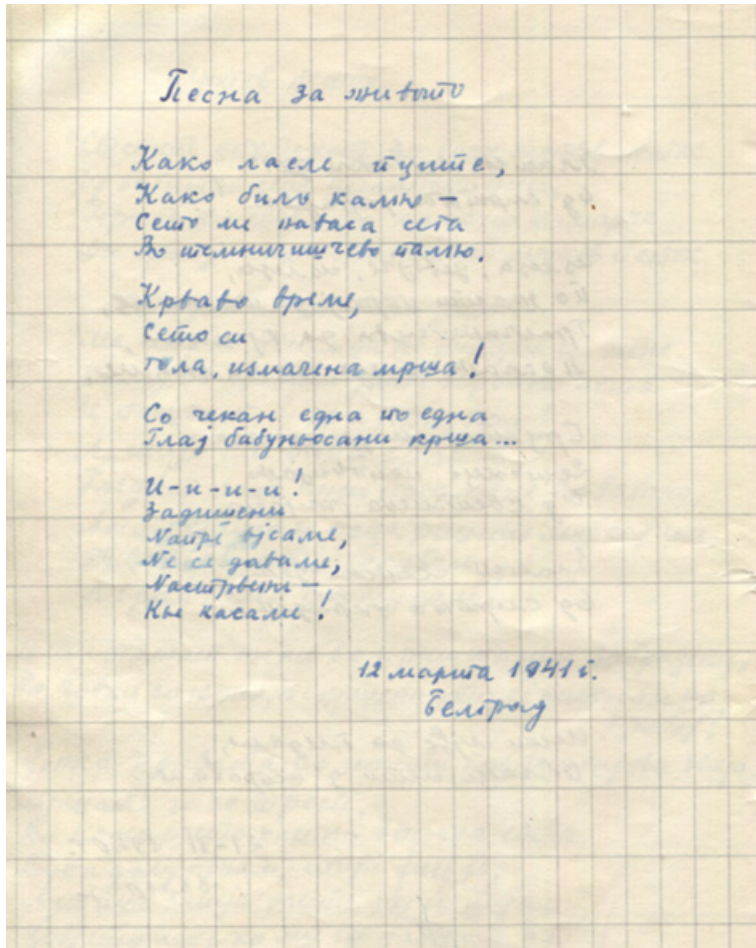 Песна за живото
Како ласле птците,
Како било камно —
Сето ме наваса сега
Во темничишчево тамно.
Крваво време,
Сето си
гола, измачена мрша!
Со чекан една по една
Глај бабуњосани крша...
И-и-и-и!
Задишени
Напре вјсаме,
Не се даваме,
Настрвени —
Кье касаме!
12 марта 1941 г.
Белград